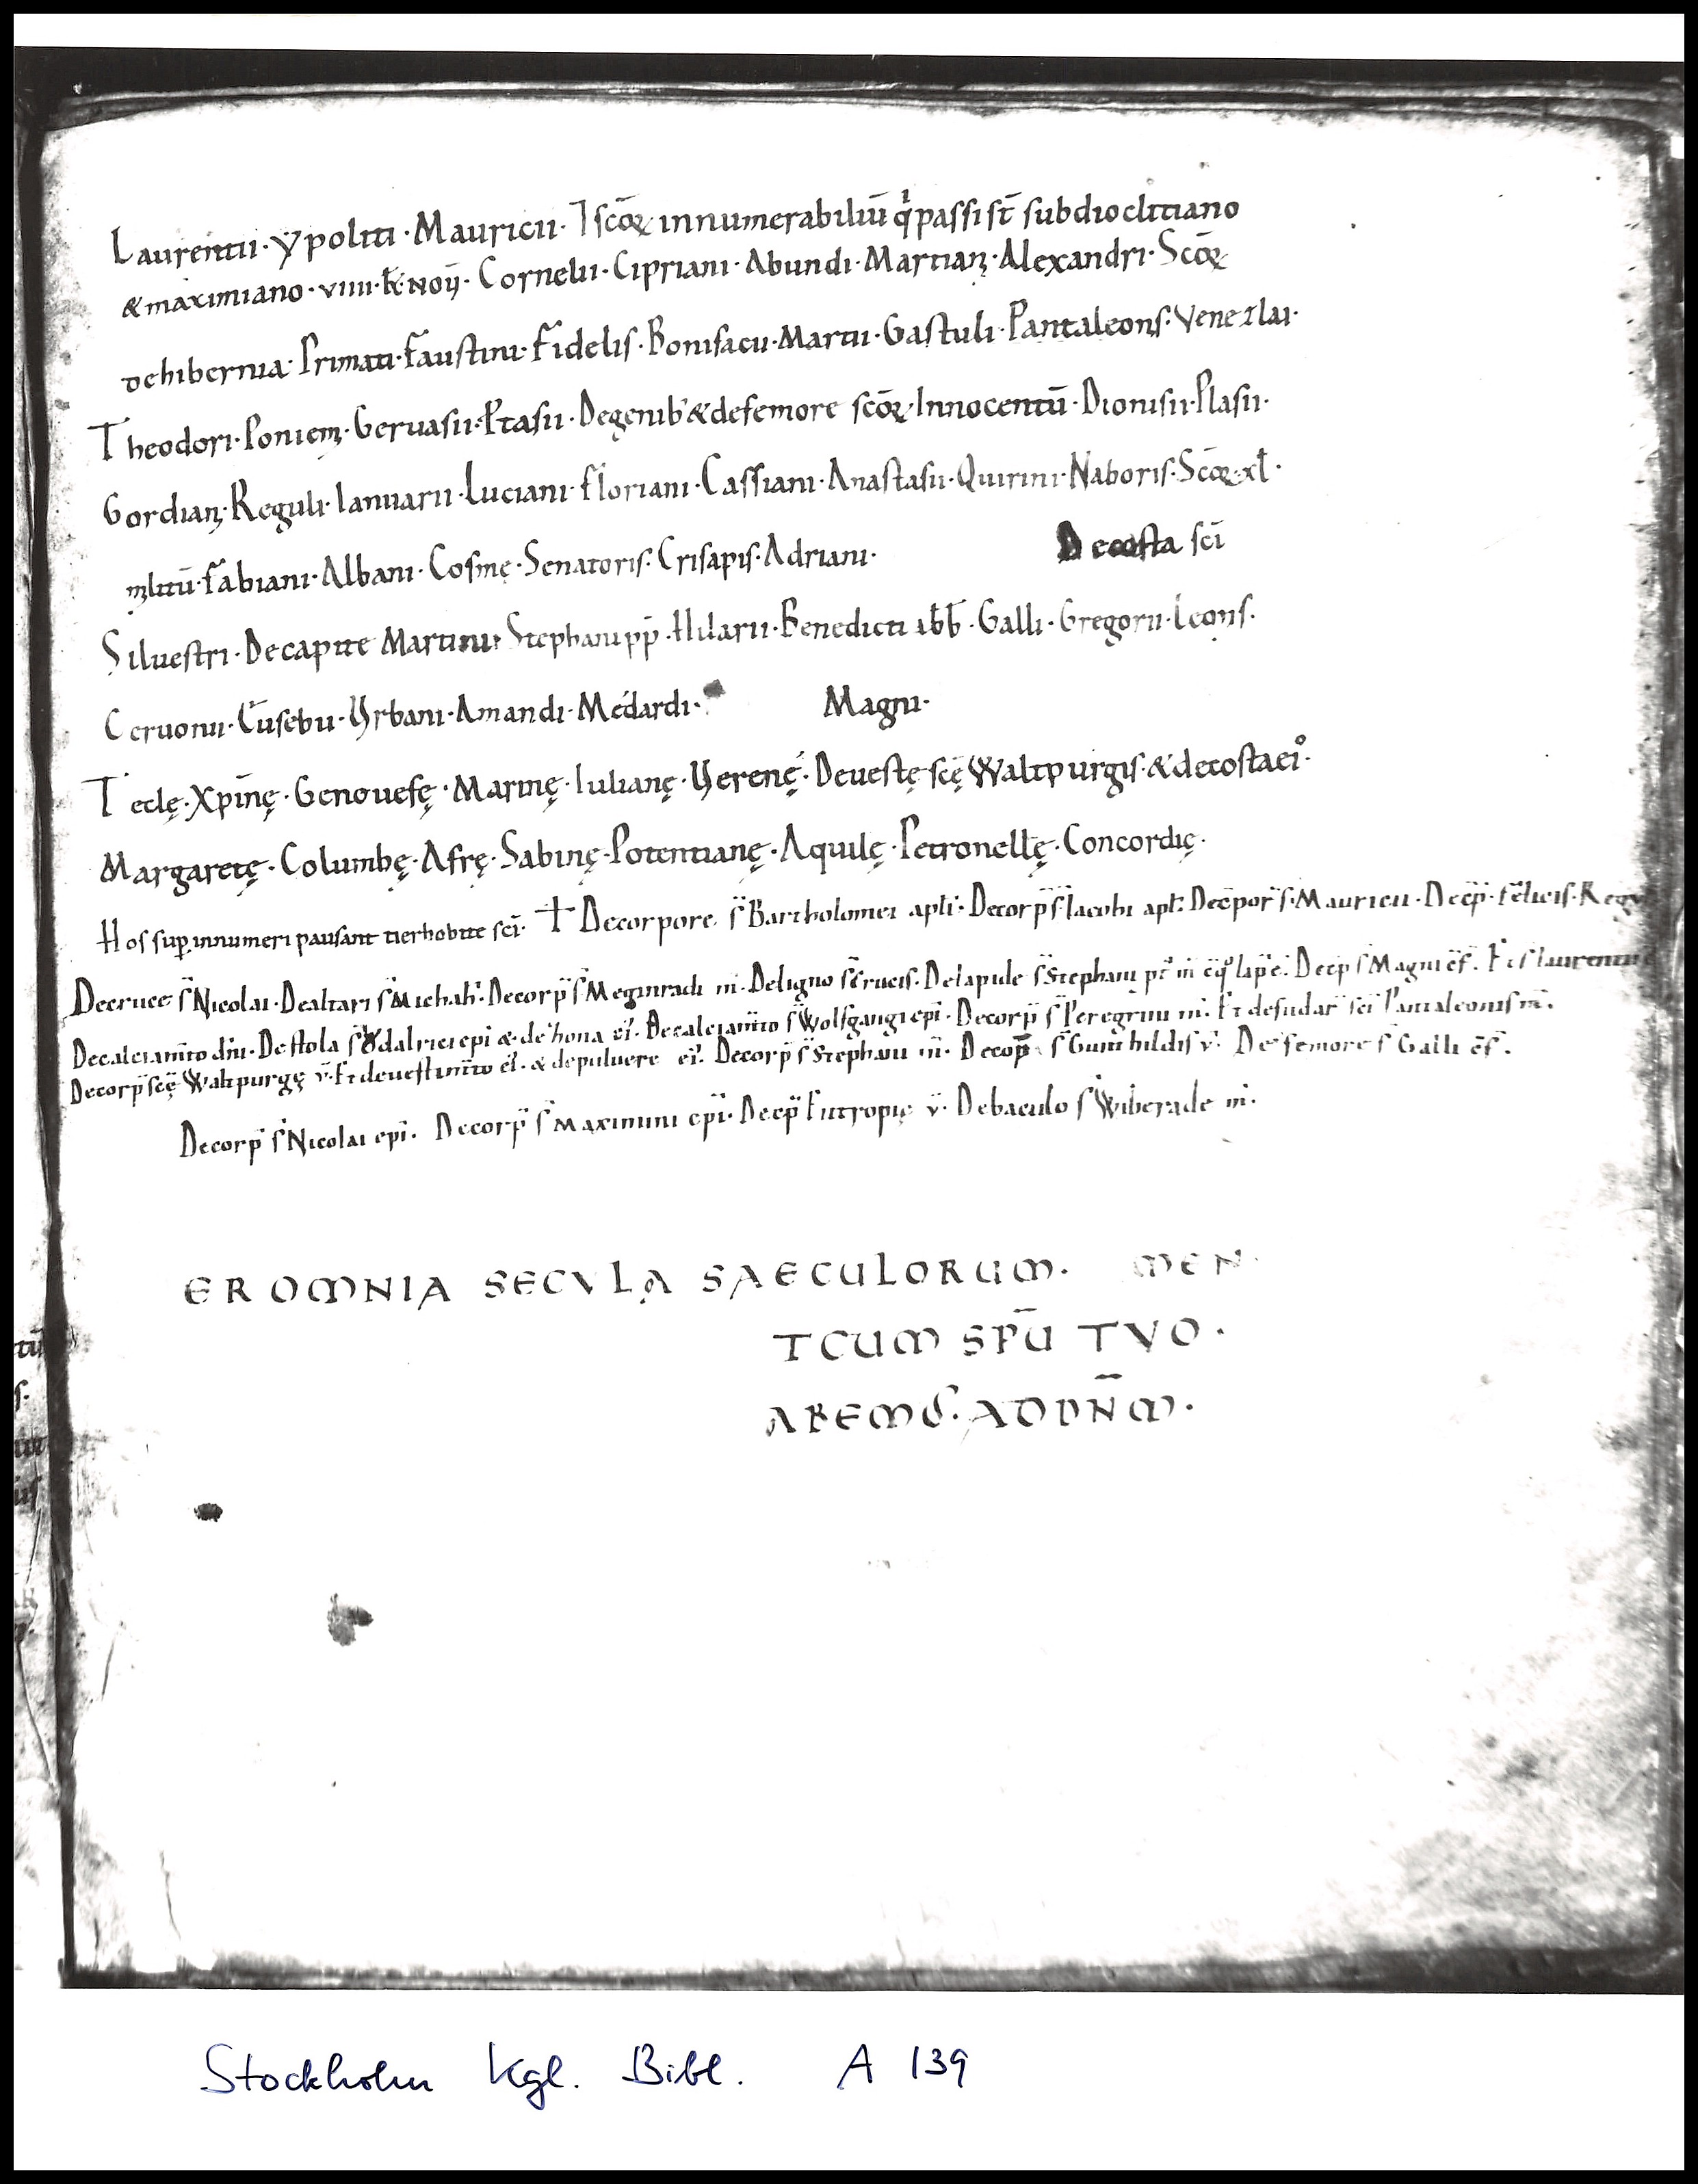 Laurentii · ypoliti · Mauricii · ⁊ scōꝝ innumerabiliū q̇ passi st̄ sub dioclitiano
& maximiano · viiii · kł · Noṽ · Cornelii · Cipriani · Abundi · Martiani · Alexandri · Scōꝝ
de hibernia · Primati · Faustini · Fidelis · Bonifacii · Martii · Gastuli · Pantaleonis · Venezlai ·
Theodori · Poniem · Geruasii · Ptasii · De genib' & de femore scōꝝ Innocentū · Dionisii · Plasii ·
Gordiani · Reguli · Ianuarii · Luciani · Floriani · Cassiani · Anastasii · Quirini · Naboris · Scōꝝ · xl ·
militū · Fabiani · Albani · Cosmę · Senatoris · Crisapis · Adriani · De costa sc̄i
Siluestri · De capite Martini · Stephani pp̄ · Hilarii · Benedicti abb̄ · Galli · Gregorii · Leonis ·
Ceruonii · Eusebii · Urbani · Amandi · Medardi · Magni ·
Teclę · Xpīnę · Genouefę · Marinę · Iulianę · Yerenę · De uestę scę̄ Waltpurgis · & de costa ei° ·
Margaretę · Columbę · Afrę · Sabinę · Potentianę · Aquilę · Petronellę · Concordię ·
Hos sup innumeri pausant sc̄i · † De corpore s̄ Bartholomei apłi · De corp̄ s̄ Iacobi apł · De c̄por s̄ · Mauricii · De c̄p̄ · felicis · Reg
De cruce s̄ Nicolai · De altari s̄ Michah' · De corp̄ s̄ Meginradi m̄ · De ligno s̄ crucis · De lapide s̄ Stephani De c̄p s̄ Magni c̄f · Et s̄ laurentii
De calciam̄to dn̄i · De stola s̄ Ǒdalrici epī & de ei · De calciam̄to s̄ Wolfgangi epī · De corp̄ s̄ Peregrini m̄ · Et de sudar̄ sc̄i Pantaleonis m̄ ·
De corp̄ scę̄ Waltpurgę v̄ · Et de uestim̄to ei · & de puluere ei · De corp̄ s̄ Stephani m̄ · De corp̄ s̄ Gunthildis v̄ · De femore s̄ Galli c̄f ·
De corp̄ s̄ Nicolai epī · De corp̄ s̄ Maximini epī · De c̄p̄ Eutropię v̄ · De baculo s̄ Wiberade m̄ ·
ER OMNIA SECVLA SAECULORUM · MEN ·
TCUM SPŪ TVO ·
ABEMꝰ · AD DN̄M ·
Stockholm Kgl. Bibl. A 139